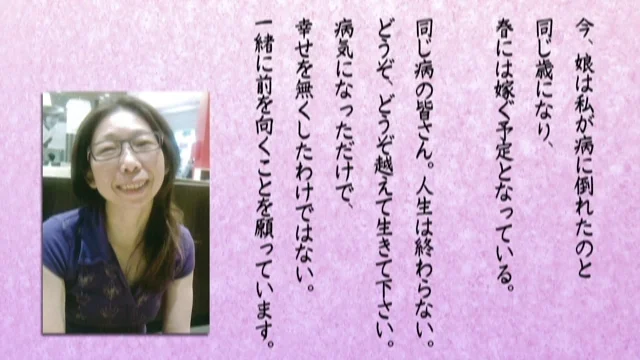 今、娘は私が病に倒れたのと
同じ歳になり、
春には嫁ぐ予定となっている。
同じ病の皆さん。人生は終わらない。
どうぞ、どうぞ越えて生きて下さい。
病気になっただけで、
幸せを無くしたわけではない。
一緒に前を向くことを願っています。